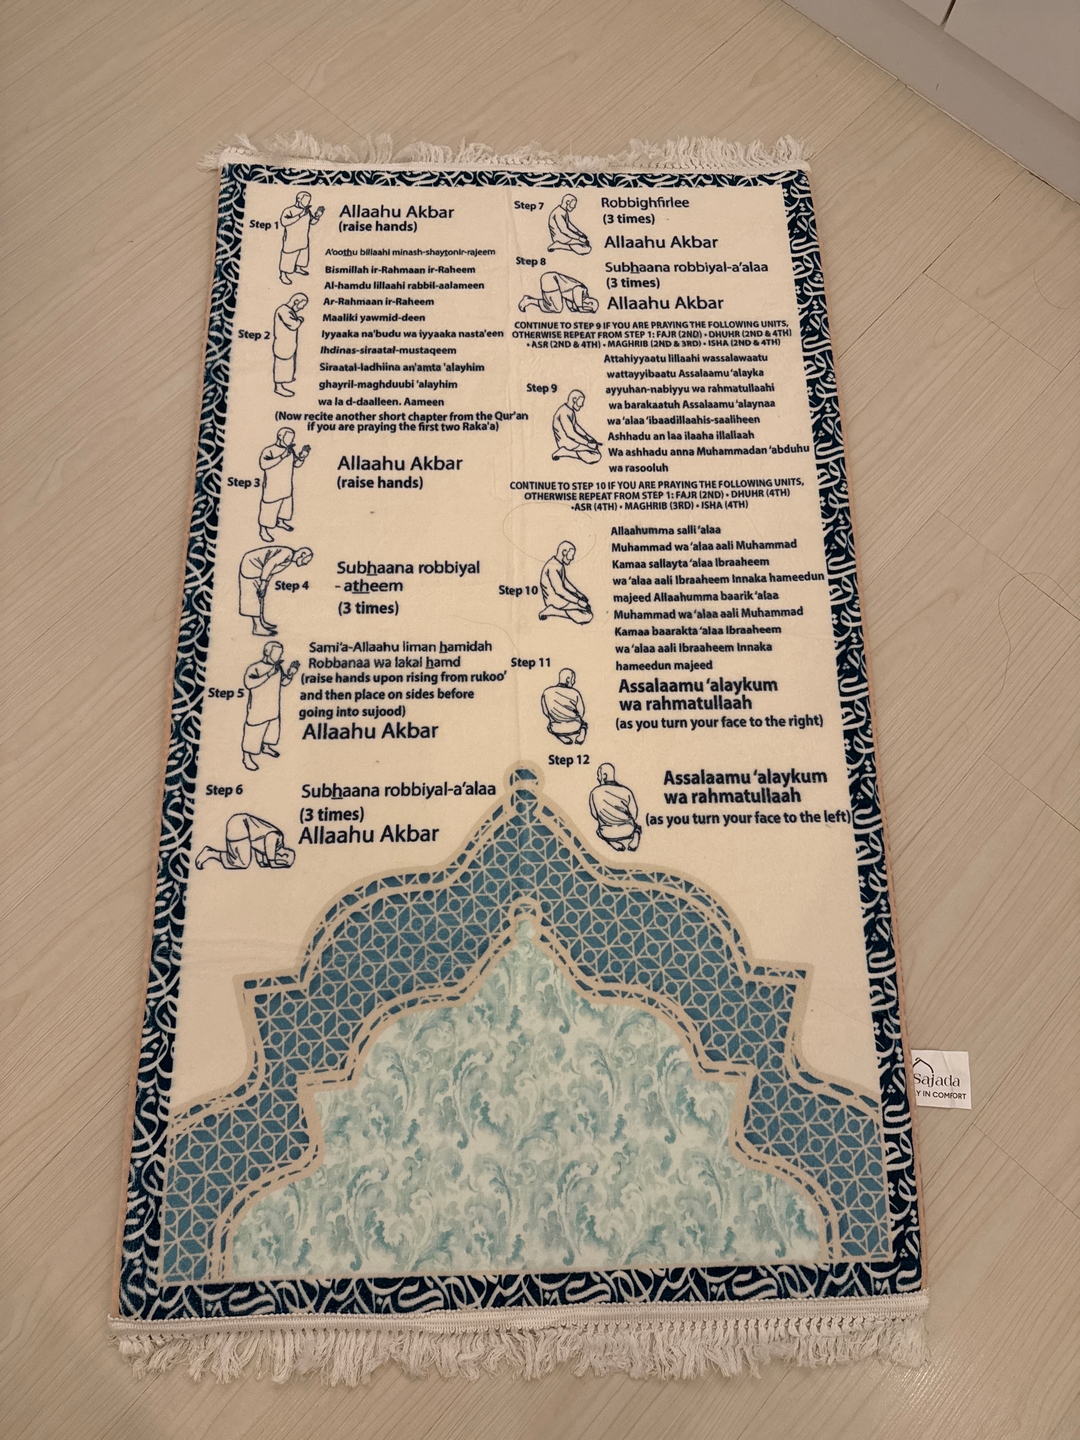 Step 1
Allaahu Akbar
(raise hands)
Step 2
A'oothu billaahi minash-shaytonir-rajeem
Bismillah ir-Rahmaan ir-Raheem
Al-hamdu lillaahi rabbil-aalameen
Ar-Rahmaan ir-Raheem
Maaliki yawmid-deen
Iyyaaka na'budu wa iyyaaka nasta'een
Ihdinas-siraatal-mustaqeem
Siraatal-ladhiina an'amta 'alayhim
ghayril-maghduubi 'alayhim
wa la d-daalleen. Aameen
(Now recite another short chapter from the Qur'an
if you are praying the first two Raka'a)
Step 3
Allaahu Akbar
(raise hands)
Step 4
Subhaana robbiyal
- atheem
(3 times)
Step 5
Sami'a-Allaahu liman hamidah
Robbanaa wa lakal hamd
(raise hands upon rising from rukoo'
and then place on sides before
going into sujood)
Allaahu Akbar
Step 6
Subhaana robbiyal-a'alaa
(3 times)
Allaahu Akbar
Step 7
Robbighfirlee
(3 times)
Allaahu Akbar
Step 8
Subhaana robbiyal-a'alaa
(3 times)
Allaahu Akbar
CONTINUE TO STEP 9 IF YOU ARE PRAYING THE FOLLOWING UNITS,
OTHERWISE REPEAT FROM STEP 1: FAJR (2ND) • DHUHR (2ND & 4TH)
• ASR (2ND & 4TH) • MAGHRIB (2ND & 3RD) • ISHA (2ND & 4TH)
Step 9
Attahiyyaatu lillaahi wassalawaatu
wattayyibaatu Assalaamu 'alayka
ayyuhan-nabiyyu wa rahmatullaahi
wa barakaatuh Assalaamu 'alaynaa
wa 'alaa 'ibaadillaahis-saaliheen
Ashhadu an laa ilaaha illallaah
Wa ashhadu anna Muhammadan 'abduhu
wa rasooluh
CONTINUE TO STEP 10 IF YOU ARE PRAYING THE FOLLOWING UNITS,
OTHERWISE REPEAT FROM STEP 1: FAJR (2ND) • DHUHR (4TH)
•ASR (4TH) • MAGHRIB (3RD) • ISHA (4TH)
Step 10
Allaahumma salli 'alaa
Muhammad wa 'alaa aali Muhammad
Kamaa sallayta 'alaa Ibraaheem
wa 'alaa aali Ibraaheem Innaka hameedun
majeed Allaahumma baarik 'alaa
Muhammad wa 'alaa aali Muhammad
Kamaa baarakta 'alaa Ibraaheem
wa 'alaa aali Ibraaheem Innaka
hameedun majeed
Step 11
Assalaamu 'alaykum
wa rahmatullaah
(as you turn your face to the right)
Step 12
Assalaamu 'alaykum
wa rahmatullaah
(as you turn your face to the left)
Sajada
IN COMFORT